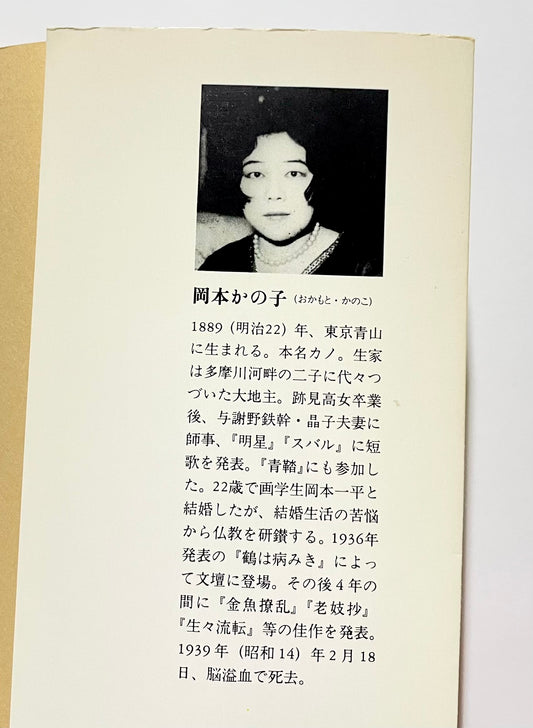 岡本かの子 (おかもと・かのこ)
1889(明治22)年、東京青山
に生まれる。本名カノ。生家
は多摩川河畔の二子に代々つ
づいた大地主。跡見高女卒業
後、与謝野鉄幹・晶子夫妻に
師事、『明星』『スバル』に短
歌を発表。『青鞜』にも参加し
た。22歳で画学生岡本一平と
結婚したが、結婚生活の苦悩
から仏教を研鑚する。1936年
発表の『鶴は病みき』によっ
て文壇に登場。その後4年の
間に『金魚撩乱』『老妓抄』
『生々流転』等の佳作を発表。
1939年(昭和14)年2月18
日、脳溢血で死去。